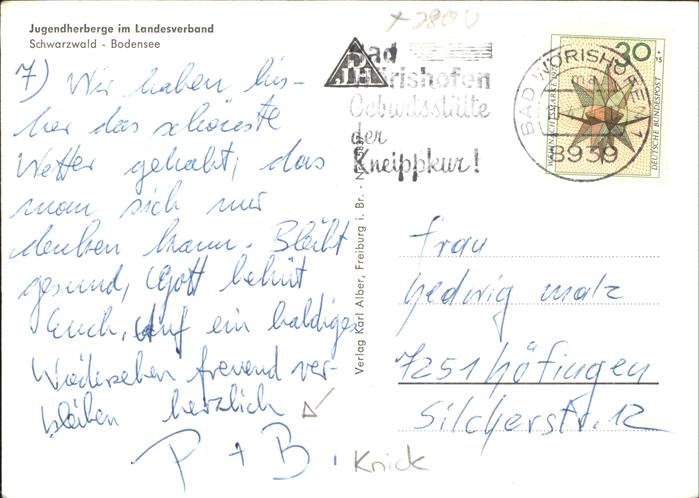 Jugendherberge im Landesverband
Schwarzwald - Bodensee
7) Wir haben bis-
her das schönste
Wetter gehabt, das
man sich nur
denken kann. Bleibt
gesund, Gott behüt
Euch. Auf ein baldiges
Wiedersehen freuend ver-
bleiben herzlich
P + B.
Knick
Verlag Karl Alber, Freiburg i. Br. - Nr.
DJH
Bad
Wörishofen
Geburtsstätte
der
Kneippkur!
BAD WÖRISHOFEN 1
8939
30
+5
WEIHNACHTSMARKE
DEUTSCHE BUNDESPOST
Frau
Hedwig Malz
7251 Höfingen
Silcherstr. 12